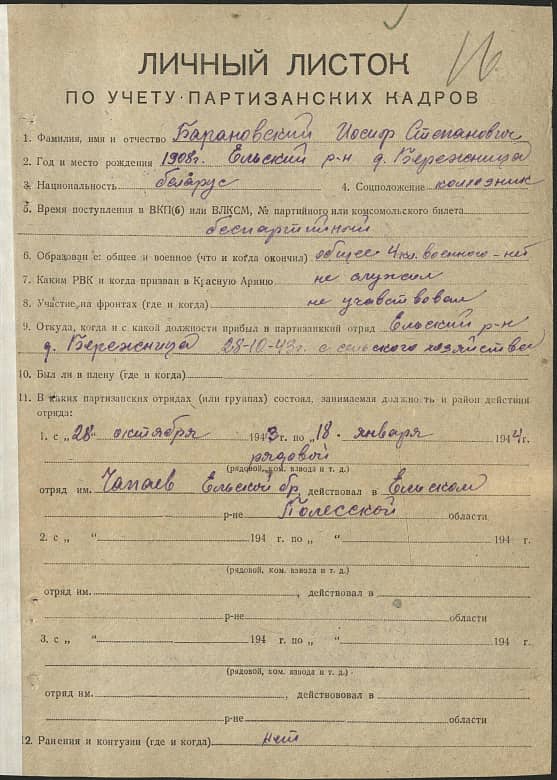 16
ЛИЧНЫЙ ЛИСТОК
ПО УЧЕТУ ПАРТИЗАНСКИХ КАДРОВ
1. Фамилия, имя и отчество Барановский Иосиф Степанович
2. Год и место рождения 1908г. Ельский р-н д. Бережница
3. Национальность беларус 4. Соцположение колхозник
5. Время поступления в ВКП(б) или ВЛКСМ, № партийного или комсомольского билета
беспартийный
6. Образован е: общее и военное (что и когда окончил) общее 4 кл. военного - нет
7. Каким РВК и когда призван в Красную Армию не служил
8. Участие на фронтах (где и когда) не учавствовал
9. Откуда, когда и с какой должности прибыл в партизанский отряд Ельский р-н
д. Бережница 28-10-43г. с сельского хозяйства
10. Был ли в плену (где и когда)
11. В каких партизанских отрядах (или группах) состоял, занимаемая должность и район действия
отряда:
1. с „28" октября 1943г. по „18" января 1944г.
рядовой
(рядовой, ком. взвода и т. д.)
отряд им. Чапаев Ельской бр. действовал в Ельском
р-не Полесской области
2. с „ " 194 г. по „ " 194 г.
(рядовой, ком. взвода и т. д.)
отряд им. , действовал в
р-не области
3. с „ " 194 г. по „ " 194 г.
(рядовой, ком. взвода и т. д.)
отряд им. , действововал в
р-не области
12. Ранения и контузии (где и когда) нет